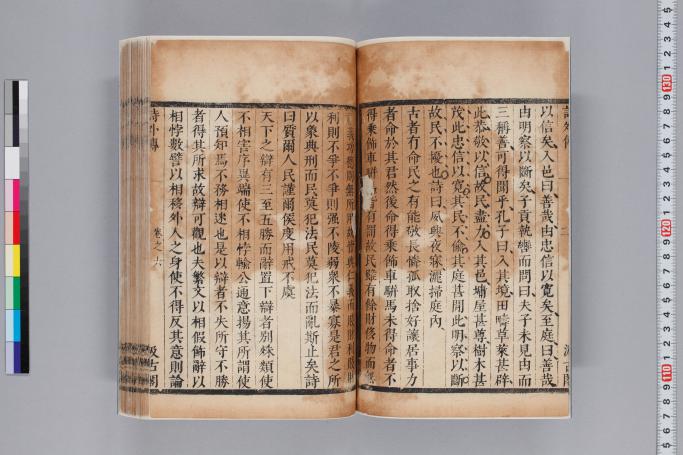 詩外傳 二 汲古閣
以信矣入邑曰善哉由忠信以寬矣至庭曰善哉
由明察以斷矣子貢執轡而問曰夫子未見由而
三稱善可得聞乎孔子曰入其境田疇草萊甚辟
此恭敬以信故民盡力入其邑墉屋甚尊樹木甚
茂此忠信以寬其民不偷其庭甚閒此明察以斷
故民不擾也詩曰夙興夜寐灑掃庭內
古者有命民之有能敬長憐孤取捨好讓居事力
者命於其君然後命得乘佈車駢馬未得命者不
得乘佈車駢 者有罰故民雖有餘財侈物而無
義功德則無所用故皆興仁義而賤財利賤財
利則不爭不爭則强不陵弱衆不暴寡是君之所
以象典刑而民莫犯法民莫犯法而亂斯止矣詩
曰質爾人民謹爾侯度用戒不虞
天下之辯有三至五勝而辭置下辯者別殊類使
不相害序異端使不相悖輸公通意揚其所謂使
人預知焉不務相迷也是以辯者不失所守不勝
者得其所求故辯可觀也夫繁文以相假佈辭以
相悖數譬以相移外人之身使不得反其意則論
詩外傳 卷之六 汲古閣